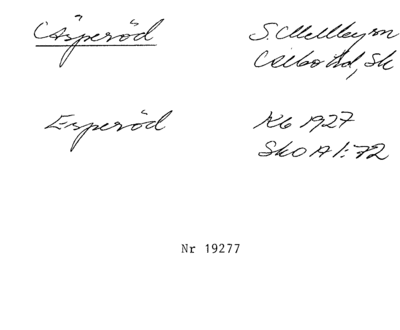 Äsperöd
S. Mellby sn
Albo hd, Sk
Esperöd
Kb 1927
SkO A 1:72
Nr 19277